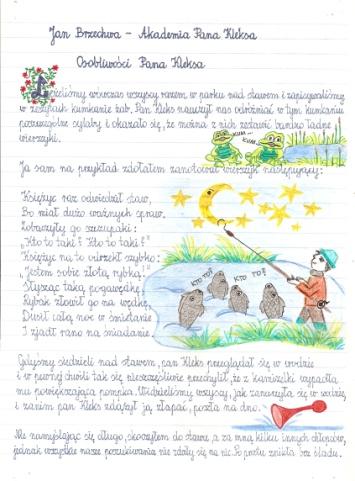 Jan Brzechwa - Akademia Pana Kleksa
Osobliwości Pana Kleksa
Siedzieliśmy wówczas wszyscy razem w parku nad stawem i zapisywaliśmy
w zeszytach kumkanie żab. Pan Kleks nauczył nas odróżniać w tym kumkaniu
poszczególne sylaby i okazało się, że można z nich zestawić bardzo ładne
wierszyki.
KUM...
KUM...
Ja sam na przykład zdołałem zanotować wierszyk następujący:
Księżyc raz odwiedził staw,
Bo miał dużo ważnych spraw.
Zobaczyły go szczupaki:
„Kto to taki? Kto to taki?"
Księżyc na to odrzekł szybko:
„Jestem sobie złotą rybką!"
Słysząc taką pogawędkę,
Rybak złowił go na wędkę,
Dusił całą noc w śmietanie
I zjadł rano na śniadanie.
KTO TO?
KTO TO?
Gdyśmy siedzieli nad stawem, pan Kleks przeglądał się w wodzie
i w pewnej chwili tak się nieszczęśliwie przechylił, że z kamizelki wypadła
mu powiększająca pompka. Widzieliśmy wszyscy, jak zanurzyła się w wodzie,
i zanim pan Kleks zdążył ją złapać, poszła na dno.
Nie namyślając się długo, skoczyłem do stawu, a za mną kilku innych chłopców,
jednak wszystkie nasze poszukiwania nie zdały się na nic. Po prostu znikła bez śladu.